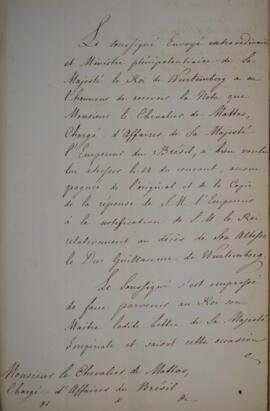 Le soussigné Envoyé extraordinaire
et Ministre plénipotentiaire de Sa
Majesté le Roi de Wurtemberg a eu
l'honneur de recevoir la Note que
Monsieur le Chevalier de Mattos,
Chargé d'Affaires de Sa Majesté
l'Empereur du Brésil, a bien voulu
lui adresser le 22 du courant, accom
pagnée de l'original et de la Copie
de la réponse de S. M. l'Empereur
à la notification de S. M. le Roi
relativement au décès de Son Altesse
le Duc Guillaume de Wurtemberg.
Le Soussigné s'est empressé
de faire parvenir au Roi son
Maître ladite Lettre de Sa Majesté
Impériale et saisit cette occasion
Monsieur le Chevalier de Mattos,
Chargé d'Affaires du Brésil